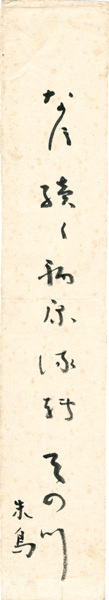 なほ續く病床流轉天の川
朱鳥